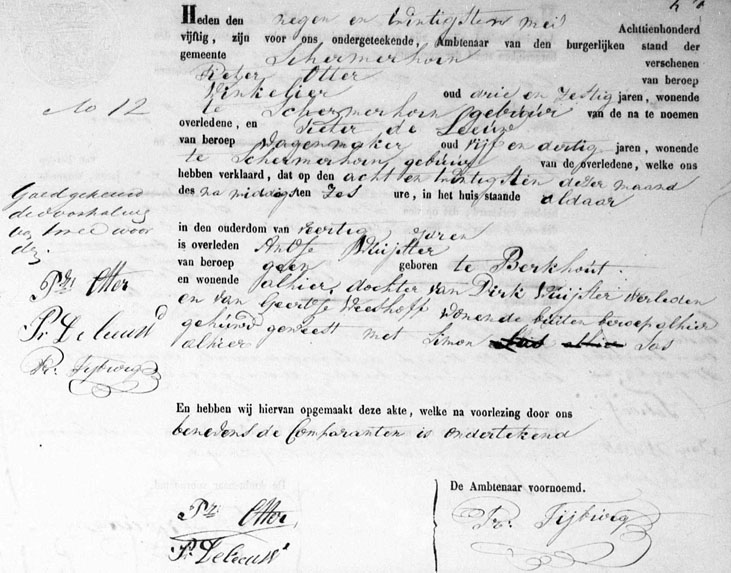 Heden den negen en twintigsten mei Achttienhonderd
vijftig, zijn voor ons ondergeteekende, Ambtenaar van den burgerlijken stand der
gemeente Schermerhorn verschenen
Pieter Otter van beroep
Winkelier oud drie en zestig jaren, wonende
te Schermerhorn gebuur van de na te noemen
overledene, en Pieter de Leeuw
van beroep wagenmaker oud vijf en dertig jaren, wonende
te Schermerhorn gebuur van de overledene, welke ons
hebben verklaard, dat op den acht en twintigsten dezer maand
des na middags ten zes ure, in het huis staande aldaar
in den ouderdom van veertig jaren
is overleden Antje
van beroep geen geboren te Berkhout.
en wonende alhier, dochter van Dirk overleden
en van Geertje wonende buiten beroep alhier
gehuwd geweest met Simon Jas
alhier
En hebben wij hiervan opgemaakt deze akte, welke na voorlezing door ons
benevens de Comparanten is ondertekend
De Ambtenaar voornoemd.
Pr. Otter
P. de Leeuw
No 12
Goedgekeurd
de doorhaling
van twee woor
den
Pr. Otter
P. de Leeuw